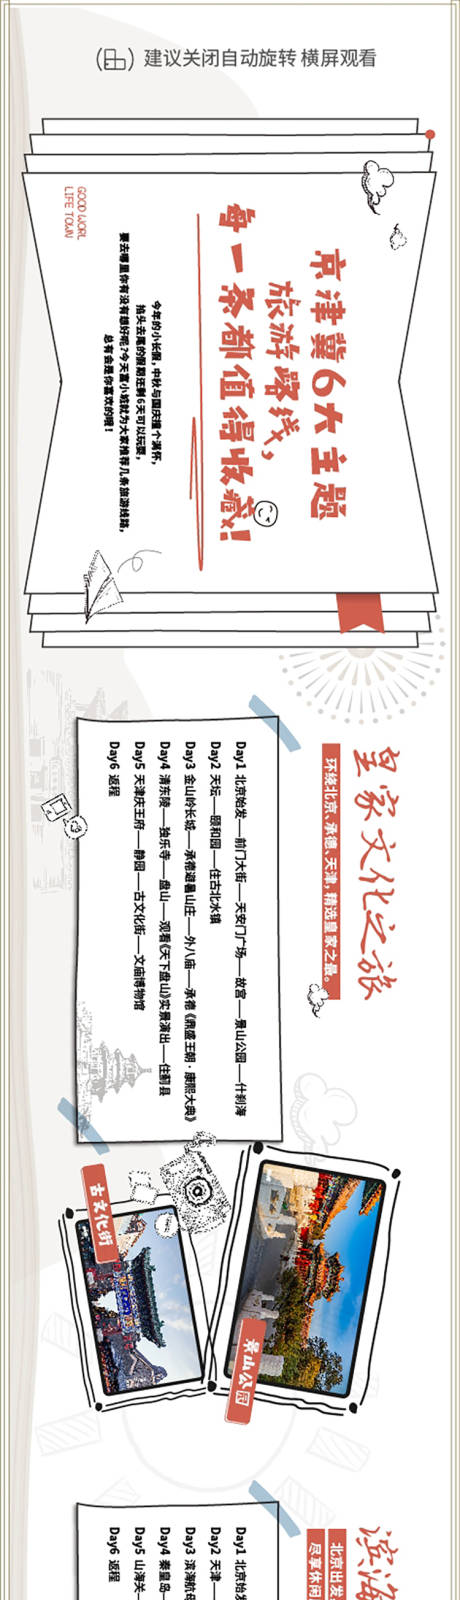 建议关闭自动旋转 横屏观看
京津冀6大主题
旅游路线，
每一条都值得收藏！
今年的小长假，中秋与国庆撞个满怀，
掐头去尾的假期还剩6天可以玩耍，
要去哪里你有没有想好呢？今天富小姐就为大家推荐几条旅游线路，
总有会是你喜欢的哦！
GOOD WORL
LIFE TOWN
皇家文化之旅
环绕北京、承德、天津，精选皇家之最。
Day1 北京始发——前门大街——天安门广场——故宫——景山公园——什刹海
Day2 天坛——颐和园——住古北水镇
Day3 金山岭长城——承德避暑山庄——外八庙——承德《鼎盛王朝·康熙大典》
Day4 清东陵——独乐寺——盘山——观看《天下盘山》实景演出——住蓟县
Day5 天津庆王府——静园——古文化街——文庙博物馆
Day6 返程
景山公园
古文化街
滨海
北京出发
尽享休闲
Day1 北京始发
Day2 天津——
Day3 滨海航母
Day4 秦皇岛—
Day5 山海关—
Day6 返程